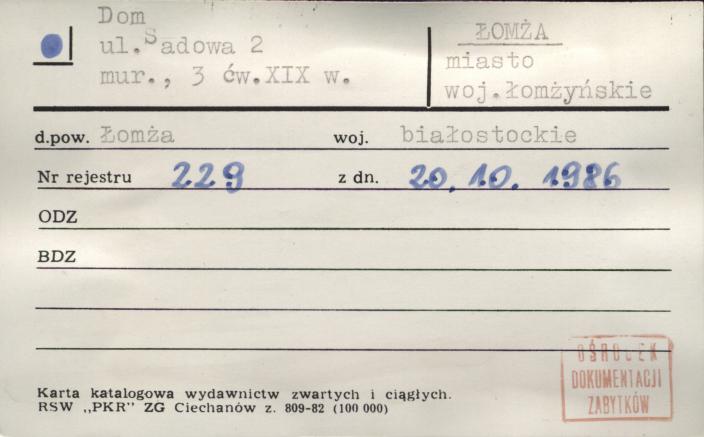 Dom
ul. Sadowa 2
mur., 3 ćw.XIX w.
ŁOMŻA
miasto
woj.łomżyńskie
d.pow. Łomża woj. białostockie
Nr rejestru 229 z dn. 20.10.1986
ODZ
BDZ
OŚRODEK
DOKUMENTACJI
ZABYTKÓW
Karta katalogowa wydawnictw zwartych i ciągłych.
RSW „PKR” ZG Ciechanów z. 809-82 (100 000)